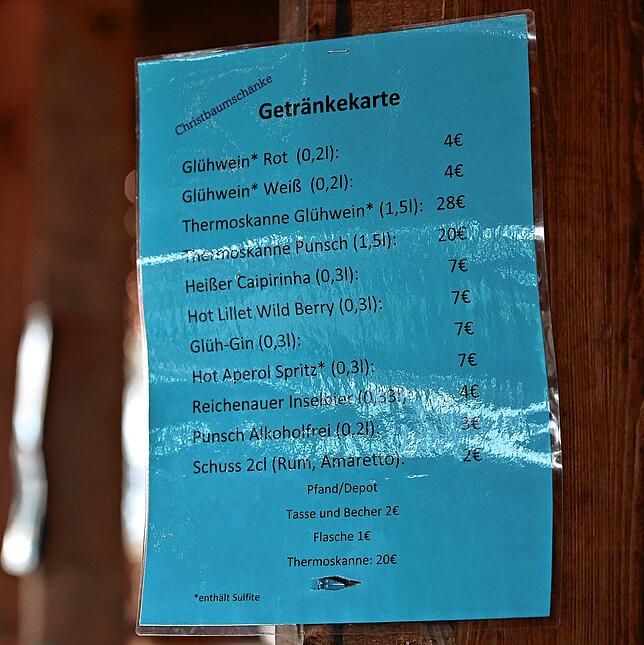 Christbaumschänke
Getränkekarte
Glühwein* Rot (0,2l): 4€
Glühwein* Weiß (0,2l): 4€
Thermoskanne Glühwein* (1,5l): 28€
Thermoskanne Punsch (1,5l): 20€
Heißer Caipirinha (0,3l): 7€
Hot Lillet Wild Berry (0,3l): 7€
Glüh-Gin (0,3l): 7€
Hot Aperol Spritz* (0,3l): 7€
Reichenauer Inselbier (0,33l): 4€
Punsch Alkoholfrei (0,2l): 3€
Schuss 2cl (Rum, Amaretto): 2€
Pfand/Depot
Tasse und Becher 2€
Flasche 1€
Thermoskanne: 20€
*enthält Sulfite